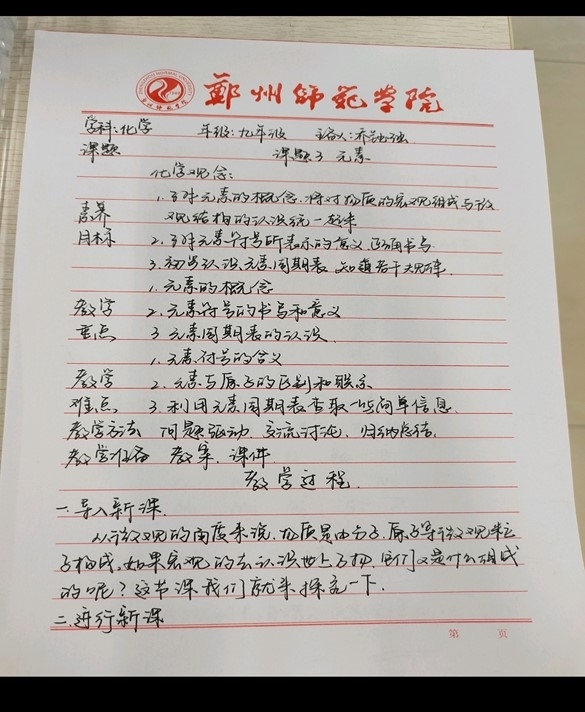 郑州师范学院
学科:化学 年级:九年级 主备人:
课题 课题3 元素
化学观念:
1.了解元素的概念,将对物质的宏观组成与微
素养 观结构的认识统一起来
目标 2.了解元素符号所表示的意义,正确书写
3.初步认识元素周期表,知道若干规律.
1.元素的概念
教学 2.元素符号的书写和意义
重点 3.元素周期表的认识.
1.元素符号的含义
教学 2.元素与原子的区别和联系
难点 3.利用元素周期表查取一些简单信息.
教学方法 问题驱动、交流讨论、归纳总结.
教学准备 教案、课件
教学过程.
一.导入新课.
从微观的角度来说,物质是由分子、原子等微观粒
子构成,如果宏观的去认识世上万物,它们又是什么组成
的呢?这节课我们就来探究一下.
二.进行新课
第 页